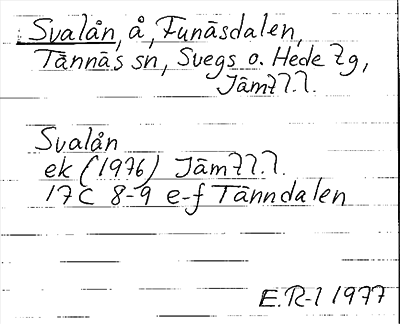 Svalån, å, Funäsdalen,
Tännäs sn, Svegs o. Hede tg,
Jämtl.l.
Svalån
ek (1976) Jämtl.l.
17C 8-9 e-f Tänndalen
E.R-l 1977